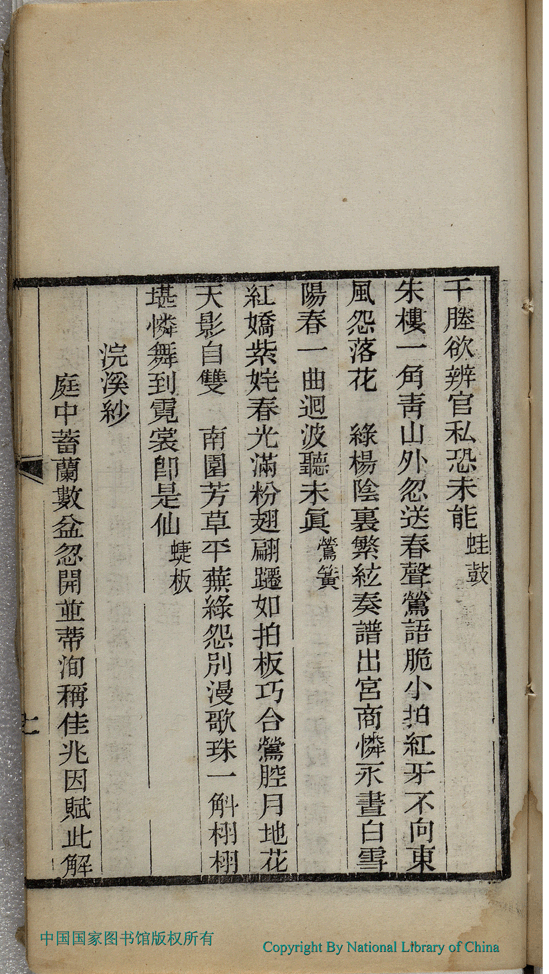 千塍欲辨官私恐未能蛙鼓
朱樓一角靑山外忽送春聲鶯語脆小拍紅牙不向東
風怨落花　綠楊陰裏繁絃奏譜出宮商憐永晝白雪
陽春一曲迴波聽未眞鶯簧
紅嬌紫姹春光滿粉翅翩躚如拍板巧合鶯腔月地花
天影自雙　南園芳草平蕪綠怨別漫歌珠一斛栩栩
堪憐舞到霓裳卽是仙蜨板
浣溪紗
庭中蓄蘭數盆忽開並蒂洵稱佳兆因賦此解
中国国家图书馆版权所有
Copyright By National Library of China